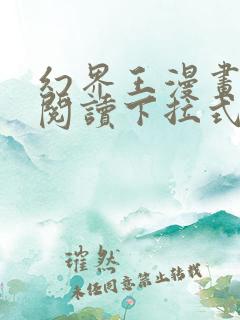 幻界王漫畫
閱讀下拉式
璀然
未经同意禁止转载